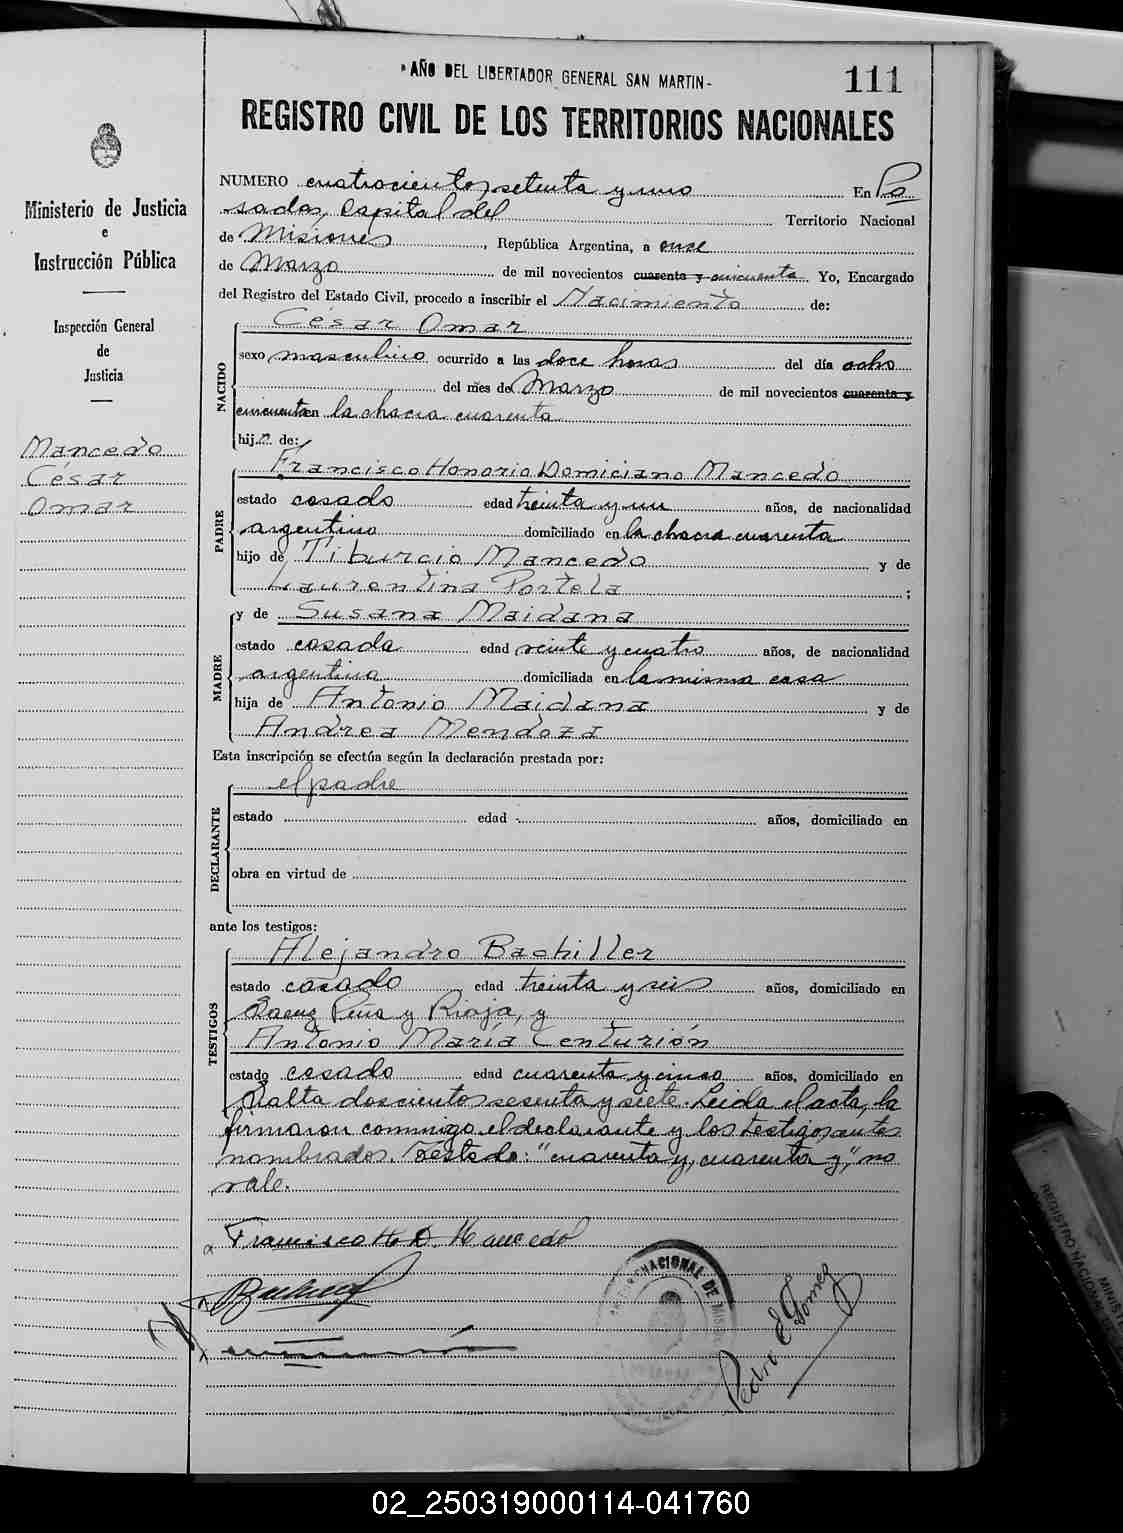 "AÑO DEL LIBERTADOR GENERAL SAN MARTIN-
111
REGISTRO CIVIL DE LOS TERRITORIOS NACIONALES
Ministerio de Justicia
e
Instrucción Pública
Inspección General
de
Justicia
Mancedo
César
Omar
NUMERO cuatrocientos setenta y uno En Po
sadas, Capital del Territorio Nacional
de Misiones, República Argentina, a onse
de Marzo de mil novecientos cuarenta y cincuenta Yo, Encargado
del Registro del Estado Civil, procedo a inscribir el Nacimiento de:
NACIDO
César Omar
sexo masculino ocurrido a las doce horas del día ocho
del mes de Marzo de mil novecientos cuarenta y
cincuenta en la chacra cuarenta
hijo de:
PADRE
Francisco Honorio Domiciano Mancedo
estado casado edad treinta y un años, de nacionalidad
argentino domiciliado en la chacra cuarenta
hijo de Tiburcio Mancedo y de
Laurentina Portela ;
MADRE
y de Susana Maidana
estado casada edad veinte y cuatro años, de nacionalidad
argentina domiciliada en la misma casa
hija de Antonio Maidana y de
Andrea Mendoza
Esta inscripción se efectúa según la declaración prestada por:
DECLARANTE
el padre
estado edad años, domiciliado en
obra en virtud de
ante los testigos:
TESTIGOS
Alejandro Bachiller
estado casado edad treinta y seis años, domiciliado en
Saenz Peña y Rioja, y
Antonio María Centurión
estado casado edad cuarenta y cinco años, domiciliado en
Salta doscientos sesenta y siete. Leida el acta, la
firmaron conmigo el declarante y los testigos antes
nombrados. Testado: "cuarenta y, cuarenta y", no
vale.
Francisco H. D. Mancedo
NACIONAL DE MIS
Pedro E. Gomez
REGISTRO NACIONAL
MINIST
02_250319000114-041760